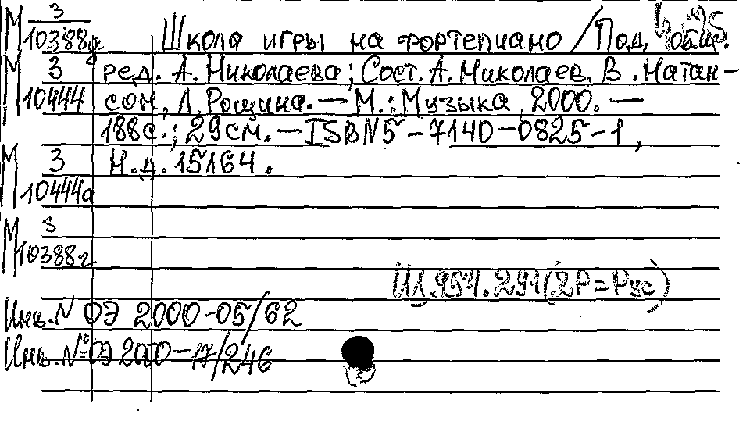 М 3
10388д Школа игры на фортепиано / Под общ.
М 3 ред. А. Николаева; Сост. А. Николаев, В. Натан-
10444 сон, Л. Рощина. — М.: Музыка, 2000. —
188с.; 29см. — ISBN 5-7140-0825-1,
М 3 Н.д. 15164.
10444а
М 3
10388г
Щ.954.294(2Р=Рус)
Инв. N ОЭ 2000-05/62
Инв. № ОЭ 2000-17/246